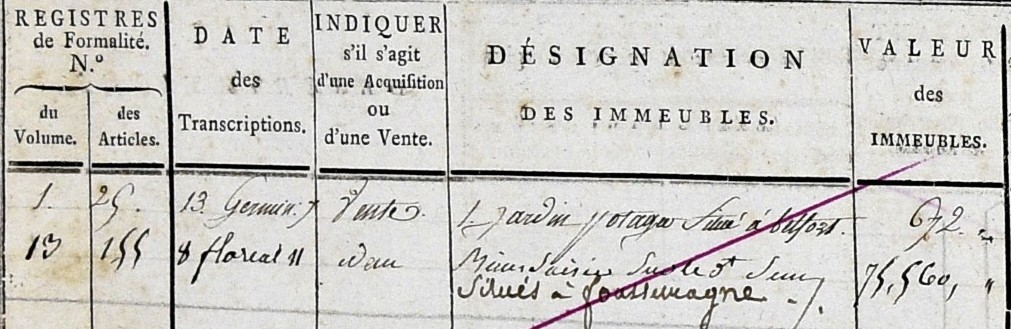 REGISTRES
de Formalité.
N.º
du
Volume.
des
Articles.
DATE
des
Transcriptions.
INDIQUER
s'il s'agit
d'une Acquisition
ou
d'une Vente.
DÉSIGNATION
DES IMMEUBLES.
VALEUR
des
IMMEUBLES.
1. 25. 13. Germin: 7 Vente. 1 Jardin potager Situé à belfort. 672. "
13 155 8 floreal 11 75,560, "
Situés à foussemagne